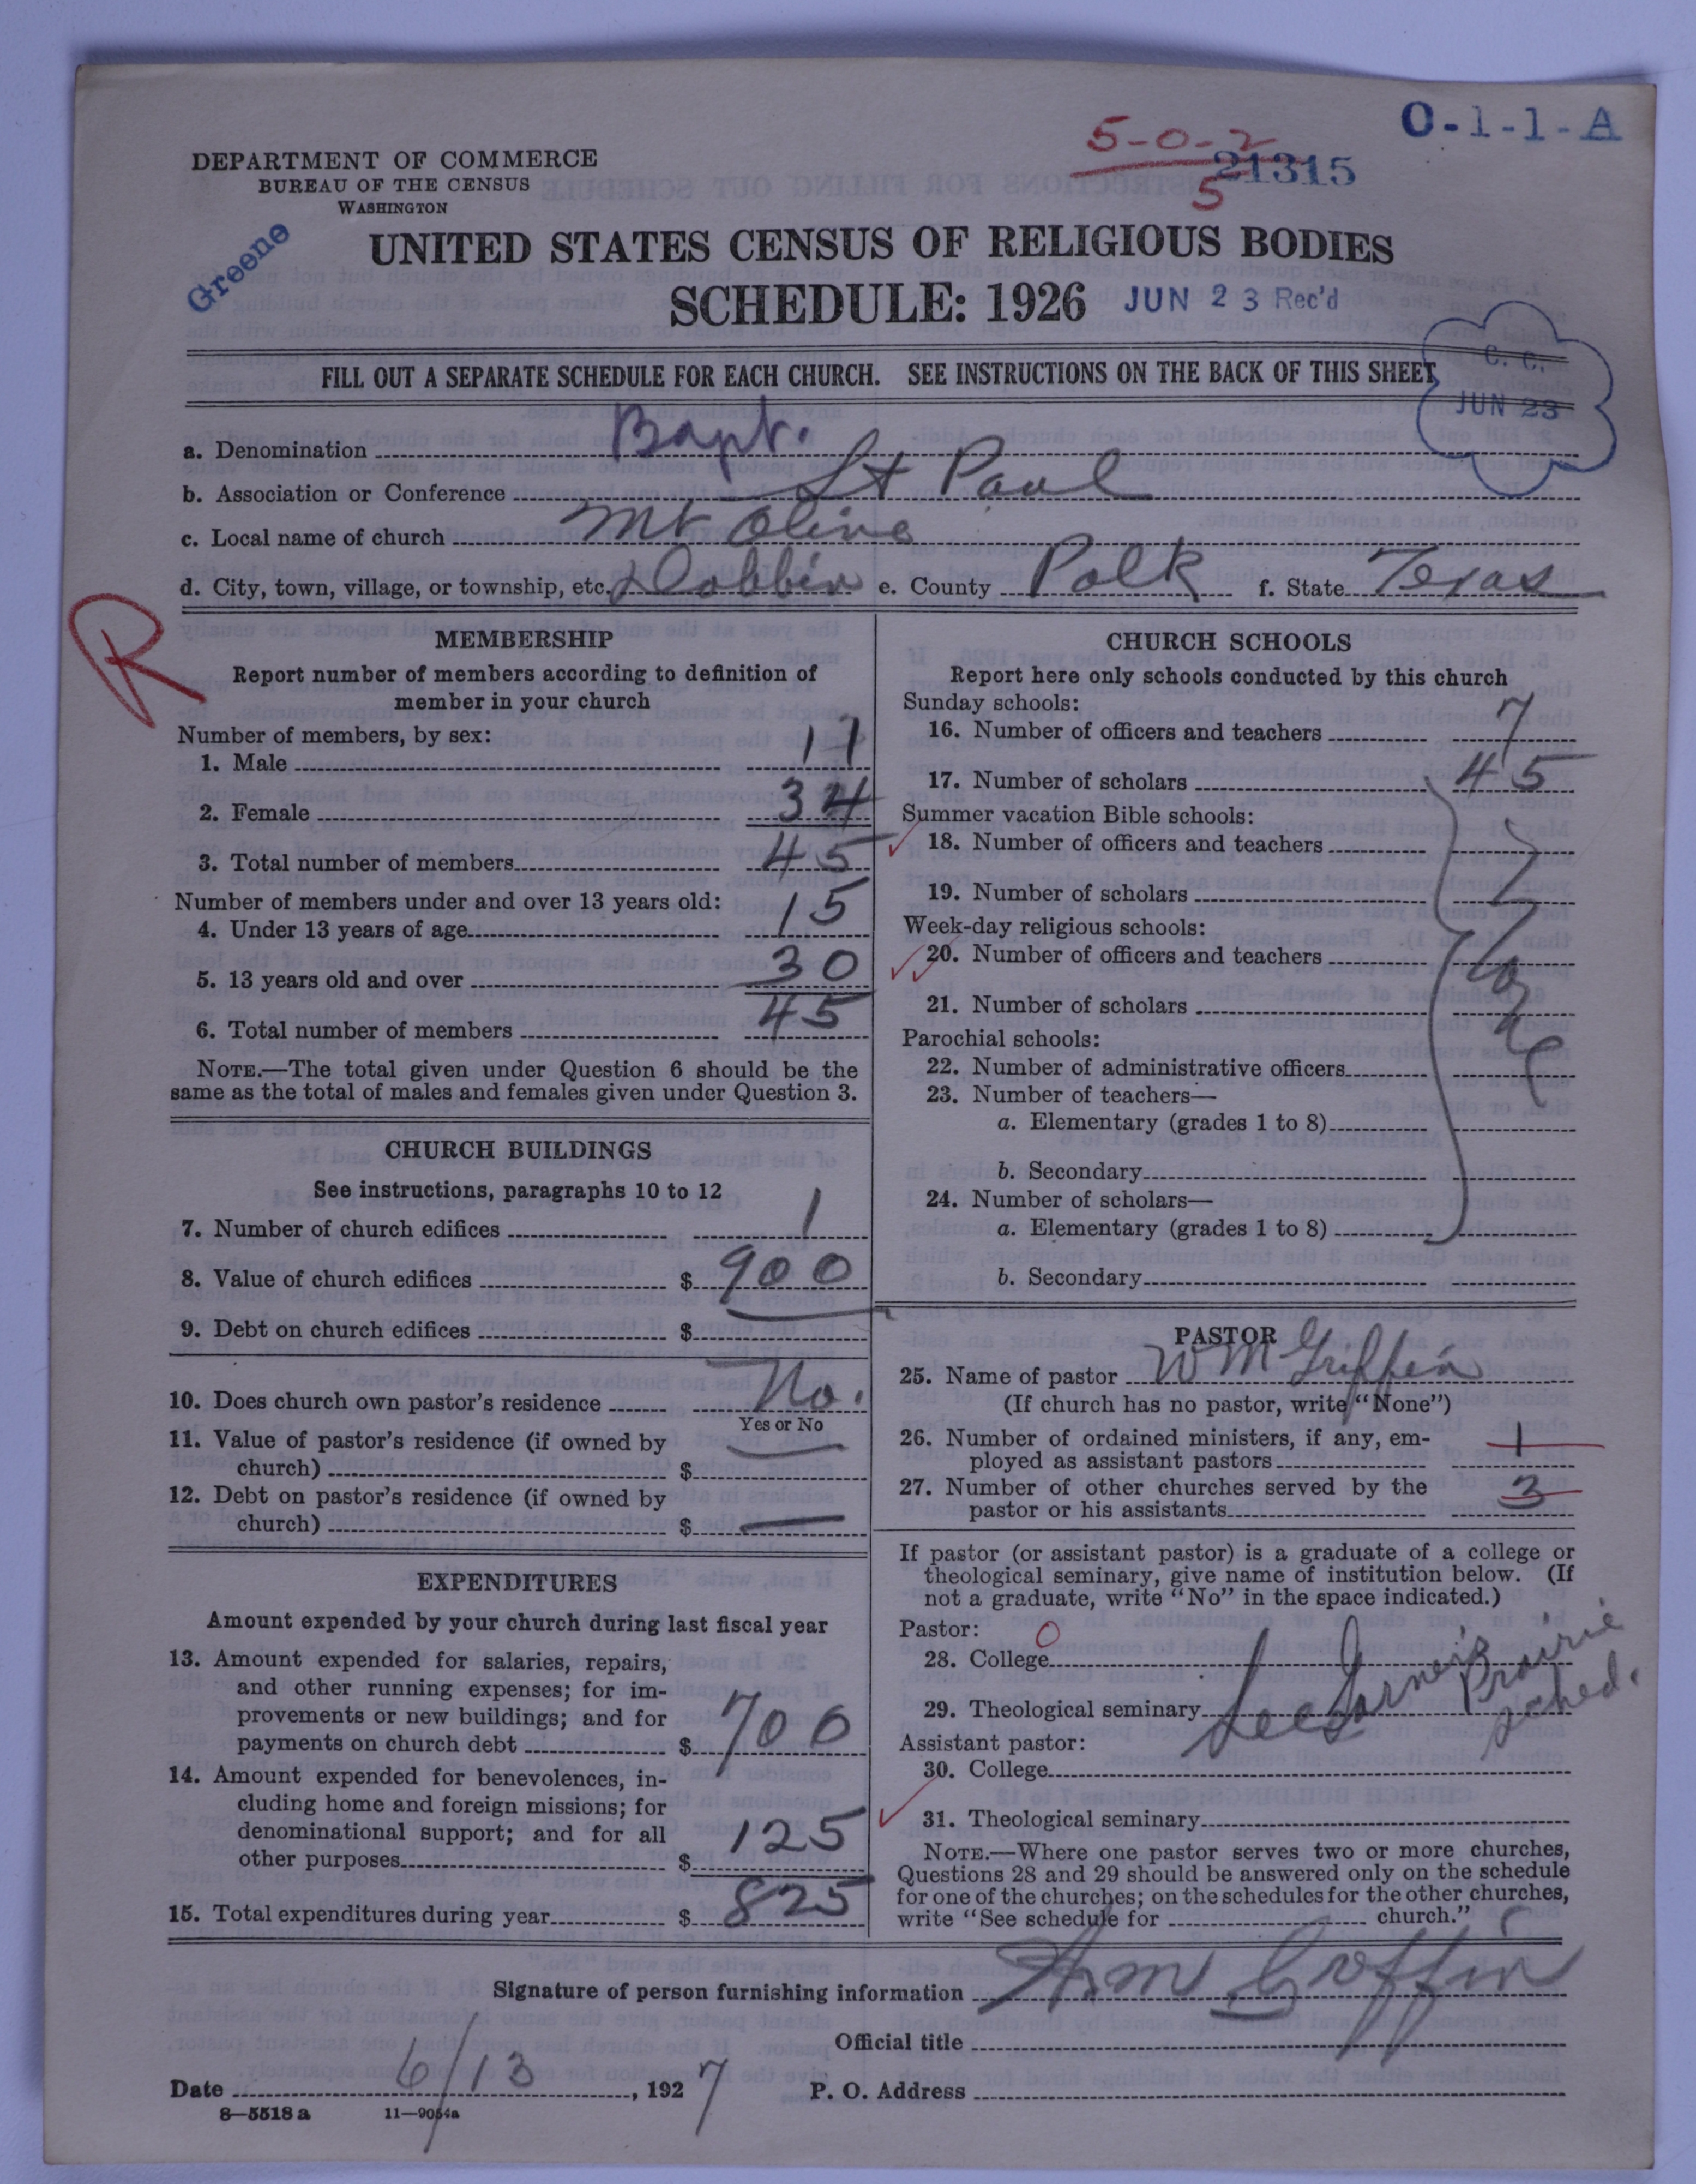 O-1-1-A
5-0-2
5
21315
DEPARTMENT OF COMMERCE
BUREAU OF THE CENSUS
WASHINGTON
Greene
UNITED STATES CENSUS OF RELIGIOUS BODIES
SCHEDULE: 1926 JUN 23 Rec'd
C. C.
JUN 23
FILL OUT A SEPARATE SCHEDULE FOR EACH CHURCH. SEE INSTRUCTIONS ON THE BACK OF THIS SHEET
a. Denomination Bapt.
b. Association or Conference St Paul
c. Local name of church Mt Olive
d. City, town, village, or township, etc. Dobbin e. County Polk f. State Texas
R
MEMBERSHIP
Report number of members according to definition of
member in your church
Number of members, by sex:
1. Male 11
2. Female 34
3. Total number of members 45
Number of members under and over 13 years old:
4. Under 13 years of age 15
5. 13 years old and over 30
6. Total number of members 45
NOTE.—The total given under Question 6 should be the
same as the total of males and females given under Question 3.
CHURCH BUILDINGS
See instructions, paragraphs 10 to 12
7. Number of church edifices 1
8. Value of church edifices $ 900
9. Debt on church edifices $
10. Does church own pastor's residence No.
Yes or No
11. Value of pastor's residence (if owned by
church) $ —
12. Debt on pastor's residence (if owned by
church) $ —
EXPENDITURES
Amount expended by your church during last fiscal year
13. Amount expended for salaries, repairs,
and other running expenses; for im-
provements or new buildings; and for
payments on church debt $ 700
14. Amount expended for benevolences, in-
cluding home and foreign missions; for
denominational support; and for all
other purposes $ 125
15. Total expenditures during year $ 825
CHURCH SCHOOLS
Report here only schools conducted by this church
Sunday schools:
16. Number of officers and teachers 7
17. Number of scholars 45
Summer vacation Bible schools:
18. Number of officers and teachers
19. Number of scholars
Week-day religious schools:
20. Number of officers and teachers
21. Number of scholars
Parochial schools:
22. Number of administrative officers
23. Number of teachers—
a. Elementary (grades 1 to 8)
b. Secondary
24. Number of scholars—
a. Elementary (grades 1 to 8)
b. Secondary
PASTOR
25. Name of pastor W M Griffin
(If church has no pastor, write "None")
26. Number of ordained ministers, if any, em-
ployed as assistant pastors 1
27. Number of other churches served by the
pastor or his assistants 3
If pastor (or assistant pastor) is a graduate of a college or
theological seminary, give name of institution below. (If
not a graduate, write "No" in the space indicated.)
Pastor: O
28. College
29. Theological seminary See Prairie
sched.
Assistant pastor:
30. College
31. Theological seminary
NOTE.—Where one pastor serves two or more churches,
Questions 28 and 29 should be answered only on the schedule
for one of the churches; on the schedules for the other churches,
write "See schedule for church."
Signature of person furnishing information
Official title
Date 6/13, 1927 P. O. Address
8—5518 a 11—9054a